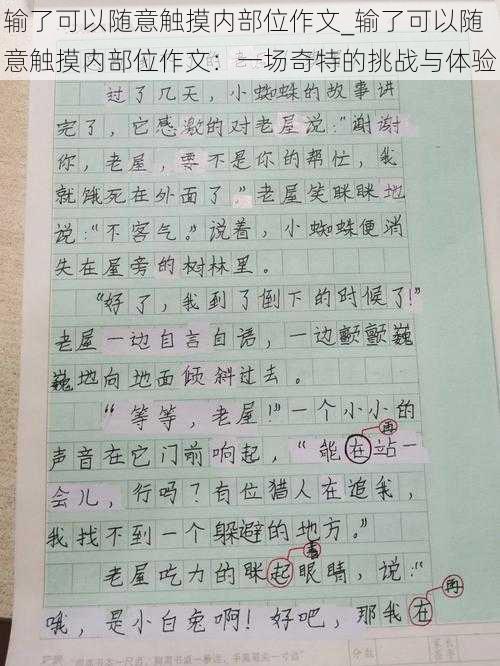 输了可以随意触摸内部位作文_输了可以随
意触摸内部位作文：一场奇特的挑战与体验
过了几天，小蜘蛛的故事讲
完了，它感激的对老屋说："谢谢
你，老屋，要不是你的帮忙，我
就饿死在外面了。"老屋笑眯眯地
说："不客气。"说着，小蜘蛛便消
失在屋旁的树林里。
"好了，我到了倒下的时候了！"
老屋一边自言自语，一边颤颤巍
巍地向地面倾斜过去。
"等等，老屋！"一个小小的
再
声音在它门前响起，"能在站一
会儿，行吗？有位猎人在追我，
我找不到一个躲避的地方。"
着
老屋吃力的眯起眼睛，说："
再
哦，是小白兔啊！好吧，那我在